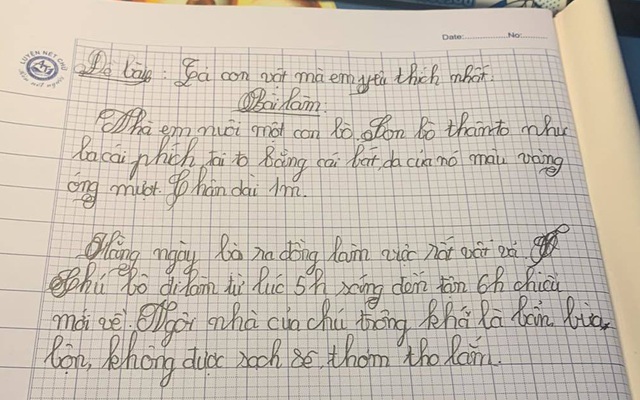 Date: No:
LUYỆN NÉT CHỮ
Đề bài: Tả con vật mà em yêu thích nhất.
Bài làm
Nhà em nuôi một con bò. Con bò thân to như
ba cái phích, tai to bằng cái bát, da của nó màu vàng
óng mượt. Chân dài 1m.
Hằng ngày bò ra đồng làm việc rất vất vả.
Chú bò đi làm từ lúc 5h sáng đến tận 6h chiều
mới về. Ngôi nhà của chú trông khá là bẩn, bừa
bộn, không được sạch sẽ, thơm tho lắm.